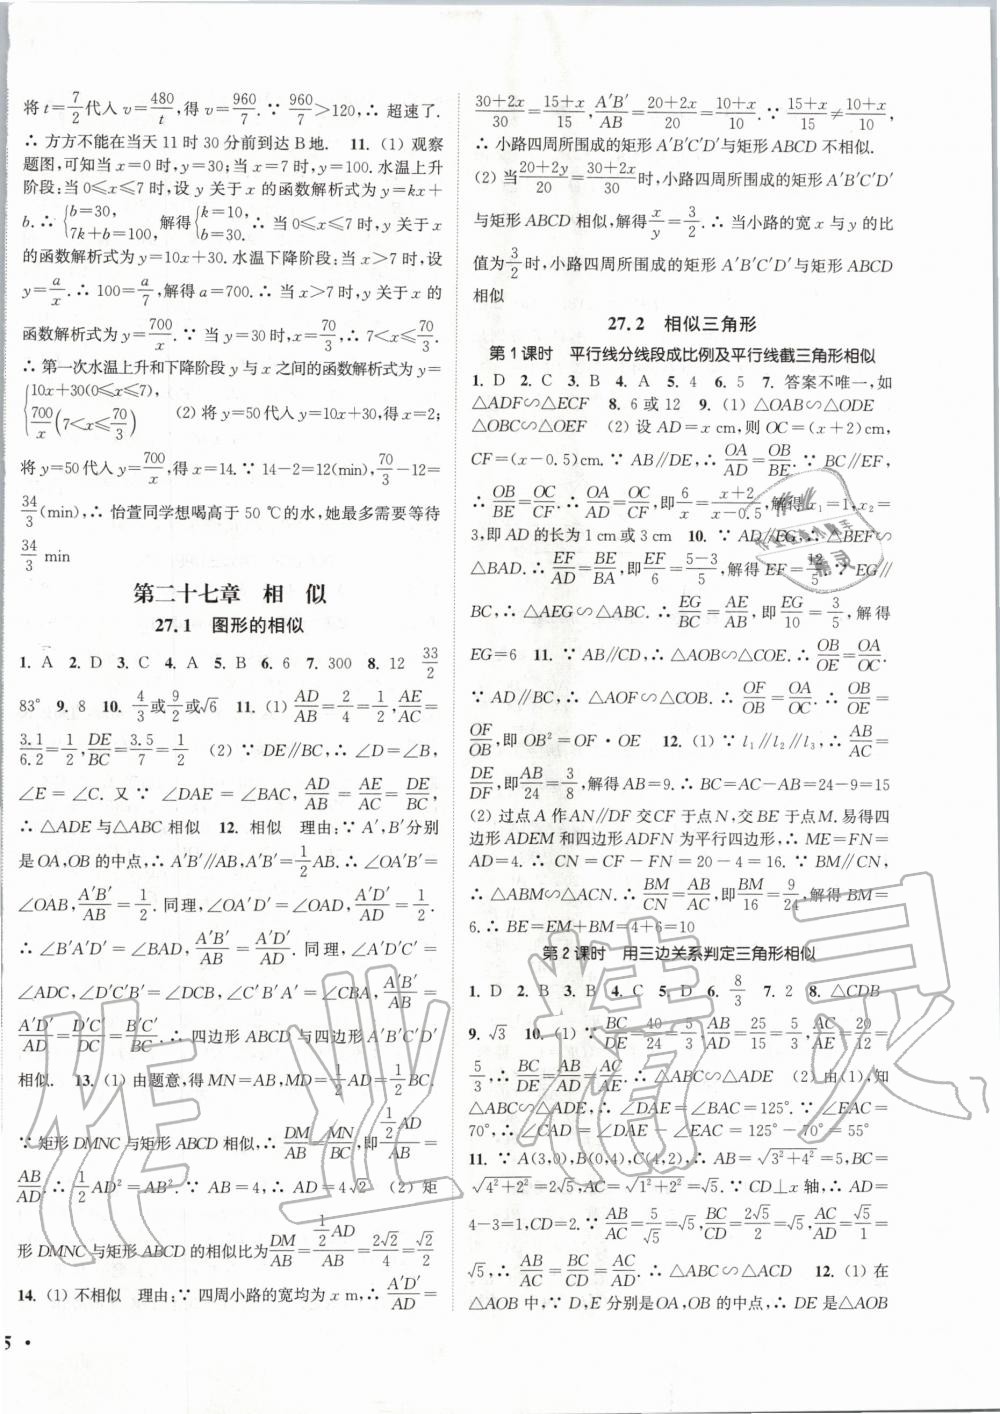 将 t=7/2代入 v=480/t,得 v=960/7.∵ 960/7>120,∴ 超速了.
∴ 方方不能在当天 11 时 30 分前到达 B 地. 11. (1) 观察
题图,可知当 x=0 时,y=30;当 x=7 时,y=100.水温上升
阶段;当 0≤x≤7 时,设 y 关于 x 的函数解析式为 y=kx+
b.∴{b=30, 7k+b=100, 解得{k=10, b=30. ∴ 当 0≤x≤7 时,y 关于 x
的函数解析式为 y=10x+30.水温下降阶段;当 x>7 时,设
y=a/x.∴ 100=a/7,解得 a=700.∴ 当 x>7 时,y 关于 x 的
函数解析式为 y=700/x.∵ 当 y=30 时,x=70/3,∴ 7<x≤70/3.
∴ 第一次水温上升和下降阶段 y 与 x 之间的函数解析式为
{10x+30(0≤x≤7), 700/x(7<x≤70/3) (2) 将 y=50 代入 y=10x+30,得 x=2;
将 y=50 代入 y=700/x,得 x=14.∵ 14-2=12(min),70/3-12=
34/3(min),∴ 怡萱同学想喝高于 50 ℃的水,她最多需要等待
34/3 min
第二十七章 相 似
27.1 图形的相似
1. A 2. D 3. C 4. A 5. B 6. 6 7. 300 8. 12 33/2
83° 9. 8 10. 4/3或9/2或√6 11. (1) AD/AB=2/4=1/2,AE/AC=
3.1/6.2=1/2,DE/BC=3.5/7=1/2 (2) ∵ DE∥BC,∴ ∠D=∠B,
∠E=∠C. 又∵ ∠DAE=∠BAC,AD/AB=AE/AC=DE/BC,
∴ △ADE 与△ABC 相似 12. 相似 理由:∵ A′,B′分别
是OA,OB 的中点,∴ A′B′∥AB,A′B′=1/2AB.∴ ∠OA′B′=
∠OAB,A′B′/AB=1/2.同理,∠OA′D′=∠OAD,A′D′/AD=1/2.
∴ ∠B′A′D′=∠BAD,A′B′/AB=A′D′/AD.同理,∠A′D′C′=
∠ADC,∠D′C′B′=∠DCB,∠C′B′A′=∠CBA,A′B′/AB=
A′D′/AD=D′C′/DC=B′C′/BC.∴ 四边形 ABCD 与四边形 A′B′C′D′
相似. 13. (1) 由题意,得 MN=AB,MD=1/2AD=1/2BC.
∵ 矩形 DMNC 与矩形 ABCD 相似,∴ DM/AB=MN/BC,即1/2AD/AB=
AB/AD.∴ 1/2AD²=AB².∵ AB=4,∴ AD=4√2 (2) 矩
形 DMNC 与矩形 ABCD 的相似比为DM/AB=1/2AD/AB=2√2/4=√2/2
14. (1) 不相似 理由:∵ 四周小路的宽均为 x m,∴ A′D′/AD=
5 •
30+2x/30=15+x/15,A′B′/AB=20+2x/20=10+x/10.∵ 15+x/15≠10+x/10,
∴ 小路四周所围成的矩形 A′B′C′D′与矩形 ABCD 不相似.
(2) 当20+2y/20=30+2x/30时,小路四周所围成的矩形 A′B′C′D′
与矩形 ABCD 相似,解得x/y=3/2.∴ 当小路的宽 x 与 y 的比
值为3/2时,小路四周所围成的矩形 A′B′C′D′与矩形 ABCD
相似
27.2 相似三角形
第 1 课时 平行线分线段成比例及平行线截三角形相似
1. D 2. C 3. B 4. A 5. 4 6. 5 7. 答案不唯一,如
△ADF∽△ECF 8. 6 或 12 9. (1) △OAB∽△ODE
△OBC∽△OEF (2) 设 AD=x cm,则 OC=(x+2)cm,
CF=(x-0.5)cm.∵ AB∥DE,∴ OA/AD=OB/BE.∵ BC∥EF,
∴ OB/BE=OC/CF.∴ OA/AD=OC/CF,即6/x=x+2/x-0.5,解得x₁=1,x₂=
3,即 AD 的长为 1 cm 或 3 cm 10. ∵ AD∥EG,∴ △BEF∽
△BAD.∴ EF/AD=BF/BD,即EF/6=5-3/5.解得 EF=12/5.∵ EG∥
BC,∴ △AEG∽△ABC.∴ EG/BC=AE/AB,即EG/10=3/5,解得
EG=6 11. ∵ AB∥CD,∴ △AOB∽△COE.∴ OB/OE=OA/OC.
∵ AD∥BC,∴ △AOF∽△COB.∴ OF/OB=OA/OC.∴ OB/OE=
OF/OB,即 OB²=OF·OE 12. (1) ∵ l₁∥l₂∥l₃,∴ AB/AC=
DE/DF,即AB/24=3/8,解得 AB=9.∴ BC=AC-AB=24-9=15
(2) 过点 A 作AN∥DF 交CF 于点N,交BE 于点M.易得四
边形 ADEM 和四边形 ADFN 为平行四边形,∴ ME=FN=
AD=4.∴ CN=CF-FN=20-4=16.∵ BM∥CN,
∴ △ABM∽△ACN.∴ BM/CN=AB/AC,即BM/16=9/24,解得 BM=
6.∴ BE=EM+BM=4+6=10
第 2 课时 用三边关系判定三角形相似
1. D 2. D 3. B 4. C 5. D 6. 8/3 7. 2 8. △CDB
9. √3 10. (1) ∵ BC/DE=40/24=5/3,AB/AD=25/15=5/3,AC/AE=20/12=
5/3,∴ BC/DE=AB/AD=AC/AE.∴ △ABC∽△ADE (2) 由(1),知
△ABC∽△ADE,∴ ∠DAE=∠BAC=125°.∵ ∠EAC=
70°,∴ ∠CAD=∠DAE-∠EAC=125°-70°=55°
11. ∵ A(3,0),B(0,4),C(4,2),∴ AB=√3²+4²=5,BC=
√4²+2²=2√5,AC=√1²+2²=√5.∵ CD⊥x 轴,∴ AD=
4-3=1,CD=2.∵ AB/AC=5/√5=√5,BC/CD=2√5/2=√5,AC/AD=√5/1=
√5,∴ AB/AC=BC/CD=AC/AD.∴ △ABC∽△ACD 12. (1) 在
△AOB 中,∵ D,E 分别是OA,OB 的中点,∴ DE 是△AOB
作业精灵